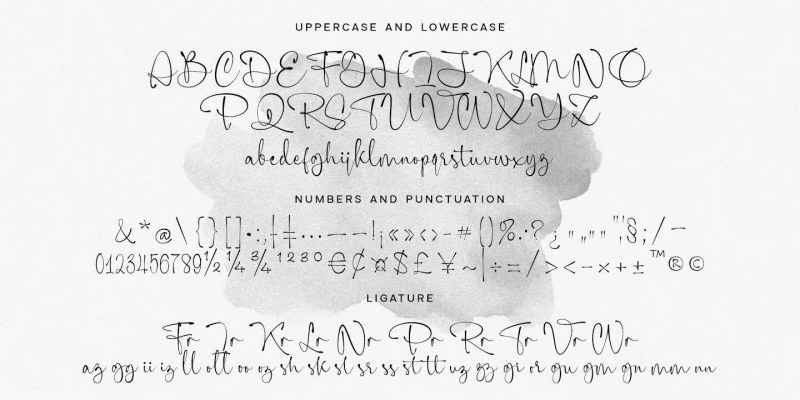 UPPERCASE AND LOWERCASE
ABCDEFGHIJKLMNO
PQRSTUVWXYZ
abcdefghijklmnopqrstuvwxyz
NUMBERS AND PUNCTUATION
&*@\{}[]•:,†‡…——!¡«»‹›-#()%.·?¿"„""'§;/–
0123456789½¼¾¹²³⁰€¢¤$£¥~|÷=/><-×+±™®©
LIGATURE
Fr Ir Kr Lr Nr Pr Rr Tr Vr Wr
az gg ii iz ll oll oo oz sh sk sl sr ss st tt uz zz gi or gu gm gn mm nn